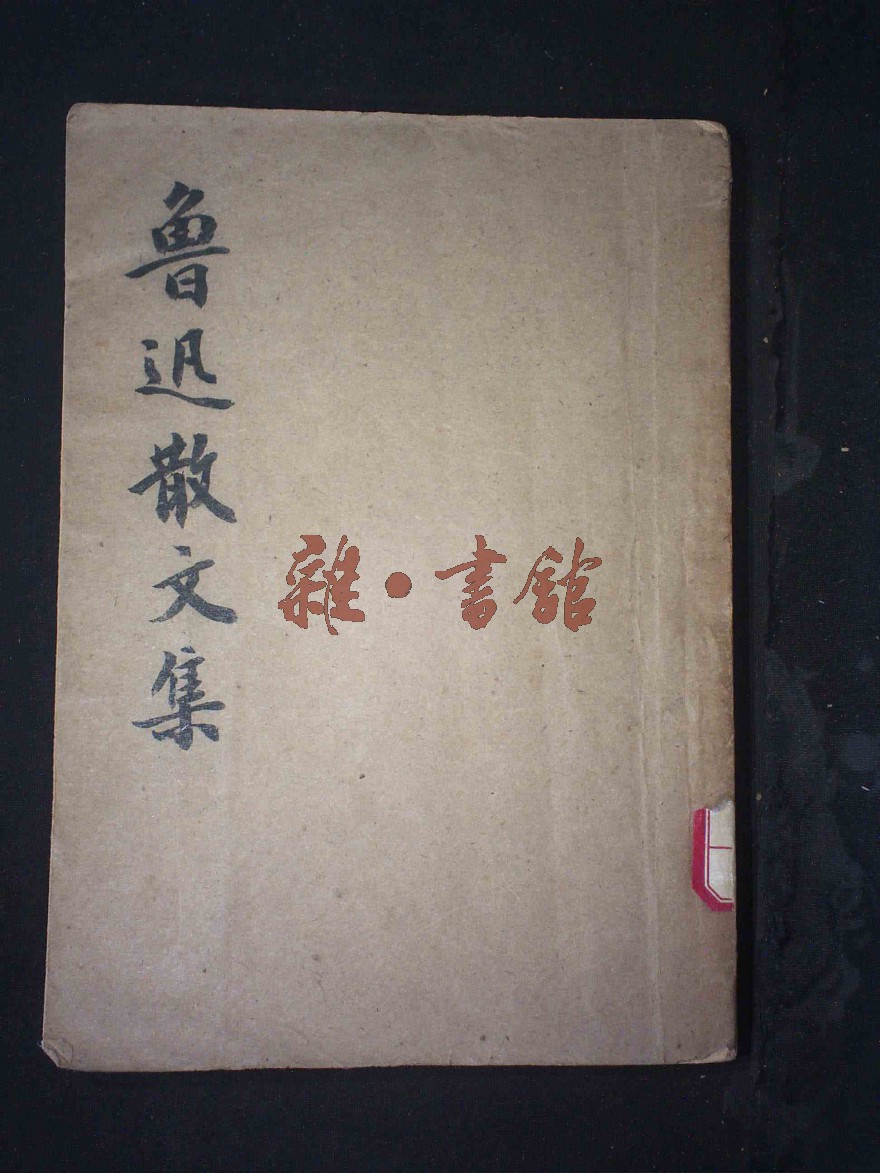 魯迅散文集
雜·書館